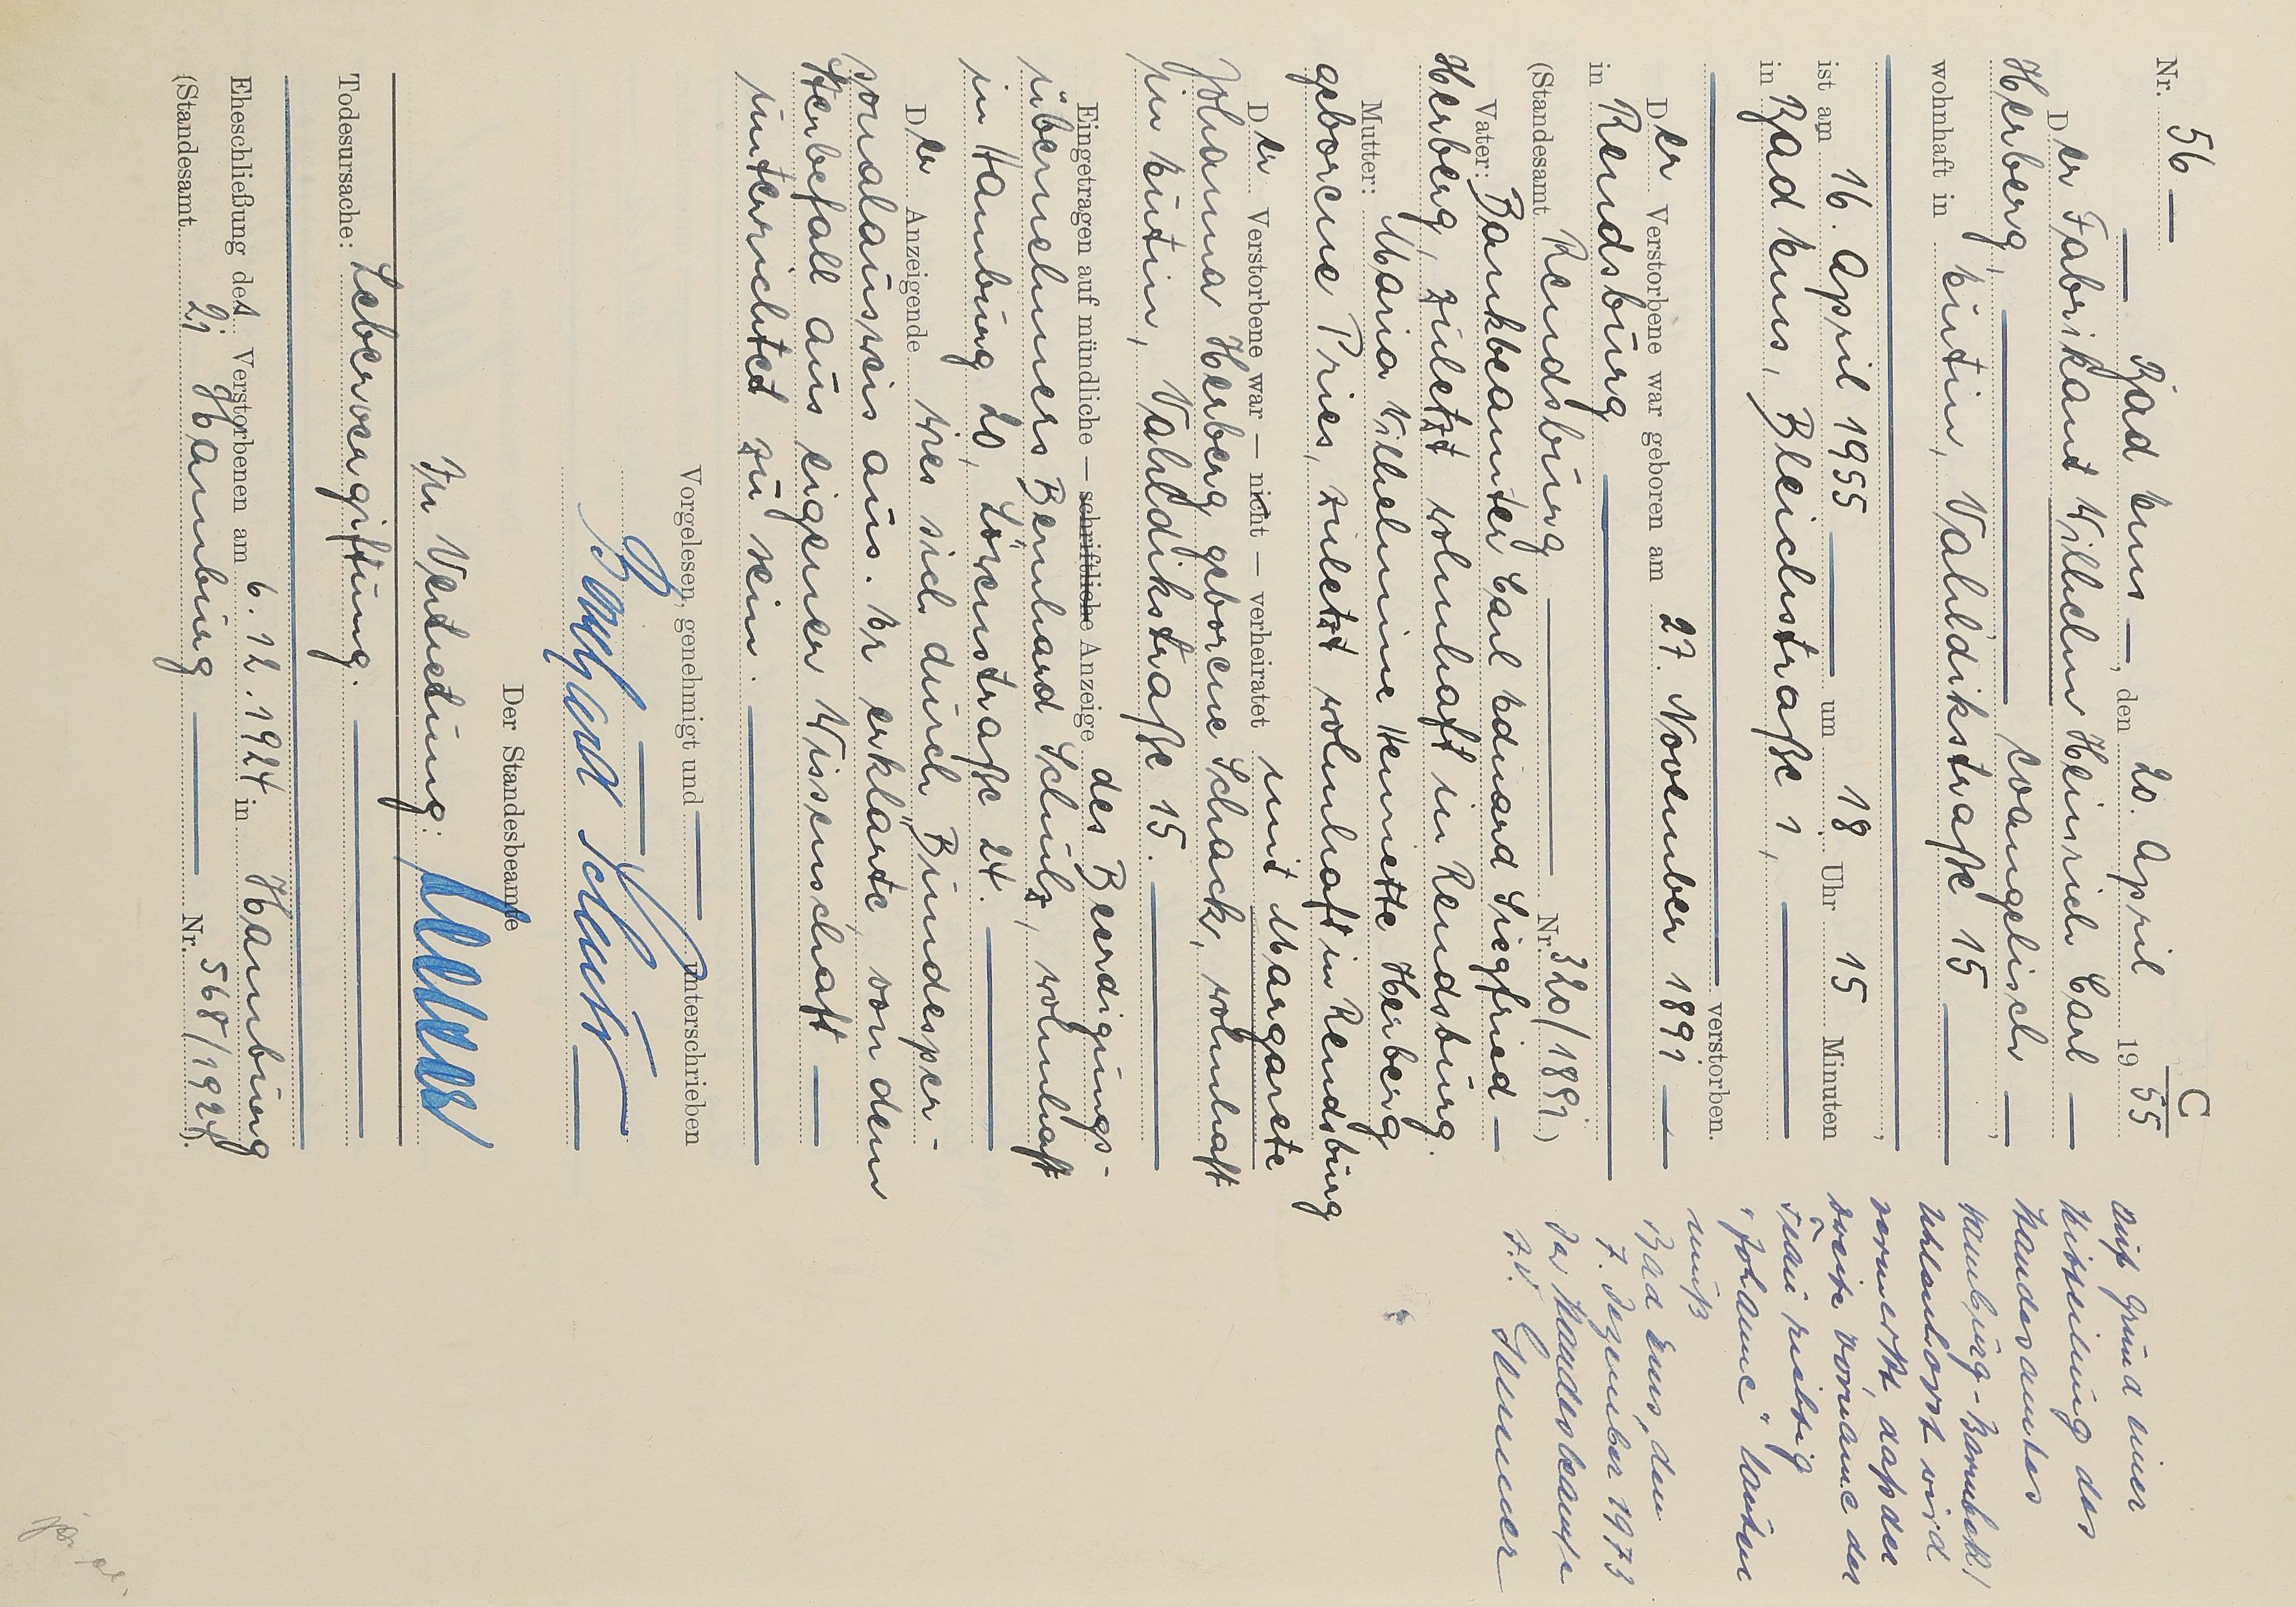 C
Nr. 56
Bad Ems, den 20. April 1955
Der Fabrikant Wilhelm Heinrich Carl
Herberg, evangelisch,
wohnhaft in Eutin, Valdikstraße 15
ist am 16. April 1955 um 18 Uhr 15 Minuten
in Bad Ems, Bleichstraße 1, verstorben.
Der Verstorbene war geboren am 27. November 1891
in Rendsburg
(Standesamt Rendsburg Nr. 320/1891)
Vater: Bankbeamter Carl Eduard Siegfried
Herberg, zuletzt wohnhaft in Rendsburg.
Mutter: Maria Wilhelmine Henriette Herberg
geborene Pries, zuletzt wohnhaft in Rendsburg
Der Verstorbene war — nicht — verheiratet mit Margarete
Johanna Herberg geborene Schack, wohnhaft
in Eutin, Valdikstraße 15.
Eingetragen auf mündliche — schriftliche Anzeige des Beerdigungs-
übernehmers Bernhard Schulz, wohnhaft
in Hamburg 20, Lövenstraße 24.
Der Anzeigende wies sich durch Bundesper-
sonalausweis aus. Er erklärte, von dem
Sterbefall aus eigener Wissenschaft
unterrichtet zu sein.
Vorgelesen, genehmigt und unterschrieben
Bernhard Schulz
Der Standesbeamte
In Vertretung:
Todesursache: Lebervergiftung.
Eheschließung des Verstorbenen am 6.12.1924 in Hamburg
(Standesamt 21 Hamburg Nr. 568/1924).
Auf Grund einer
Mitteilung des
Standesamtes
Hamburg-Barmbek/
Uhlenhorst wird
vermerkt, daß der
zweite Vorname der
Frau richtig
"Johanne" lauten
muß
Bad Ems, den
7. Dezember 1973
Der Standesbeamte
I.V.